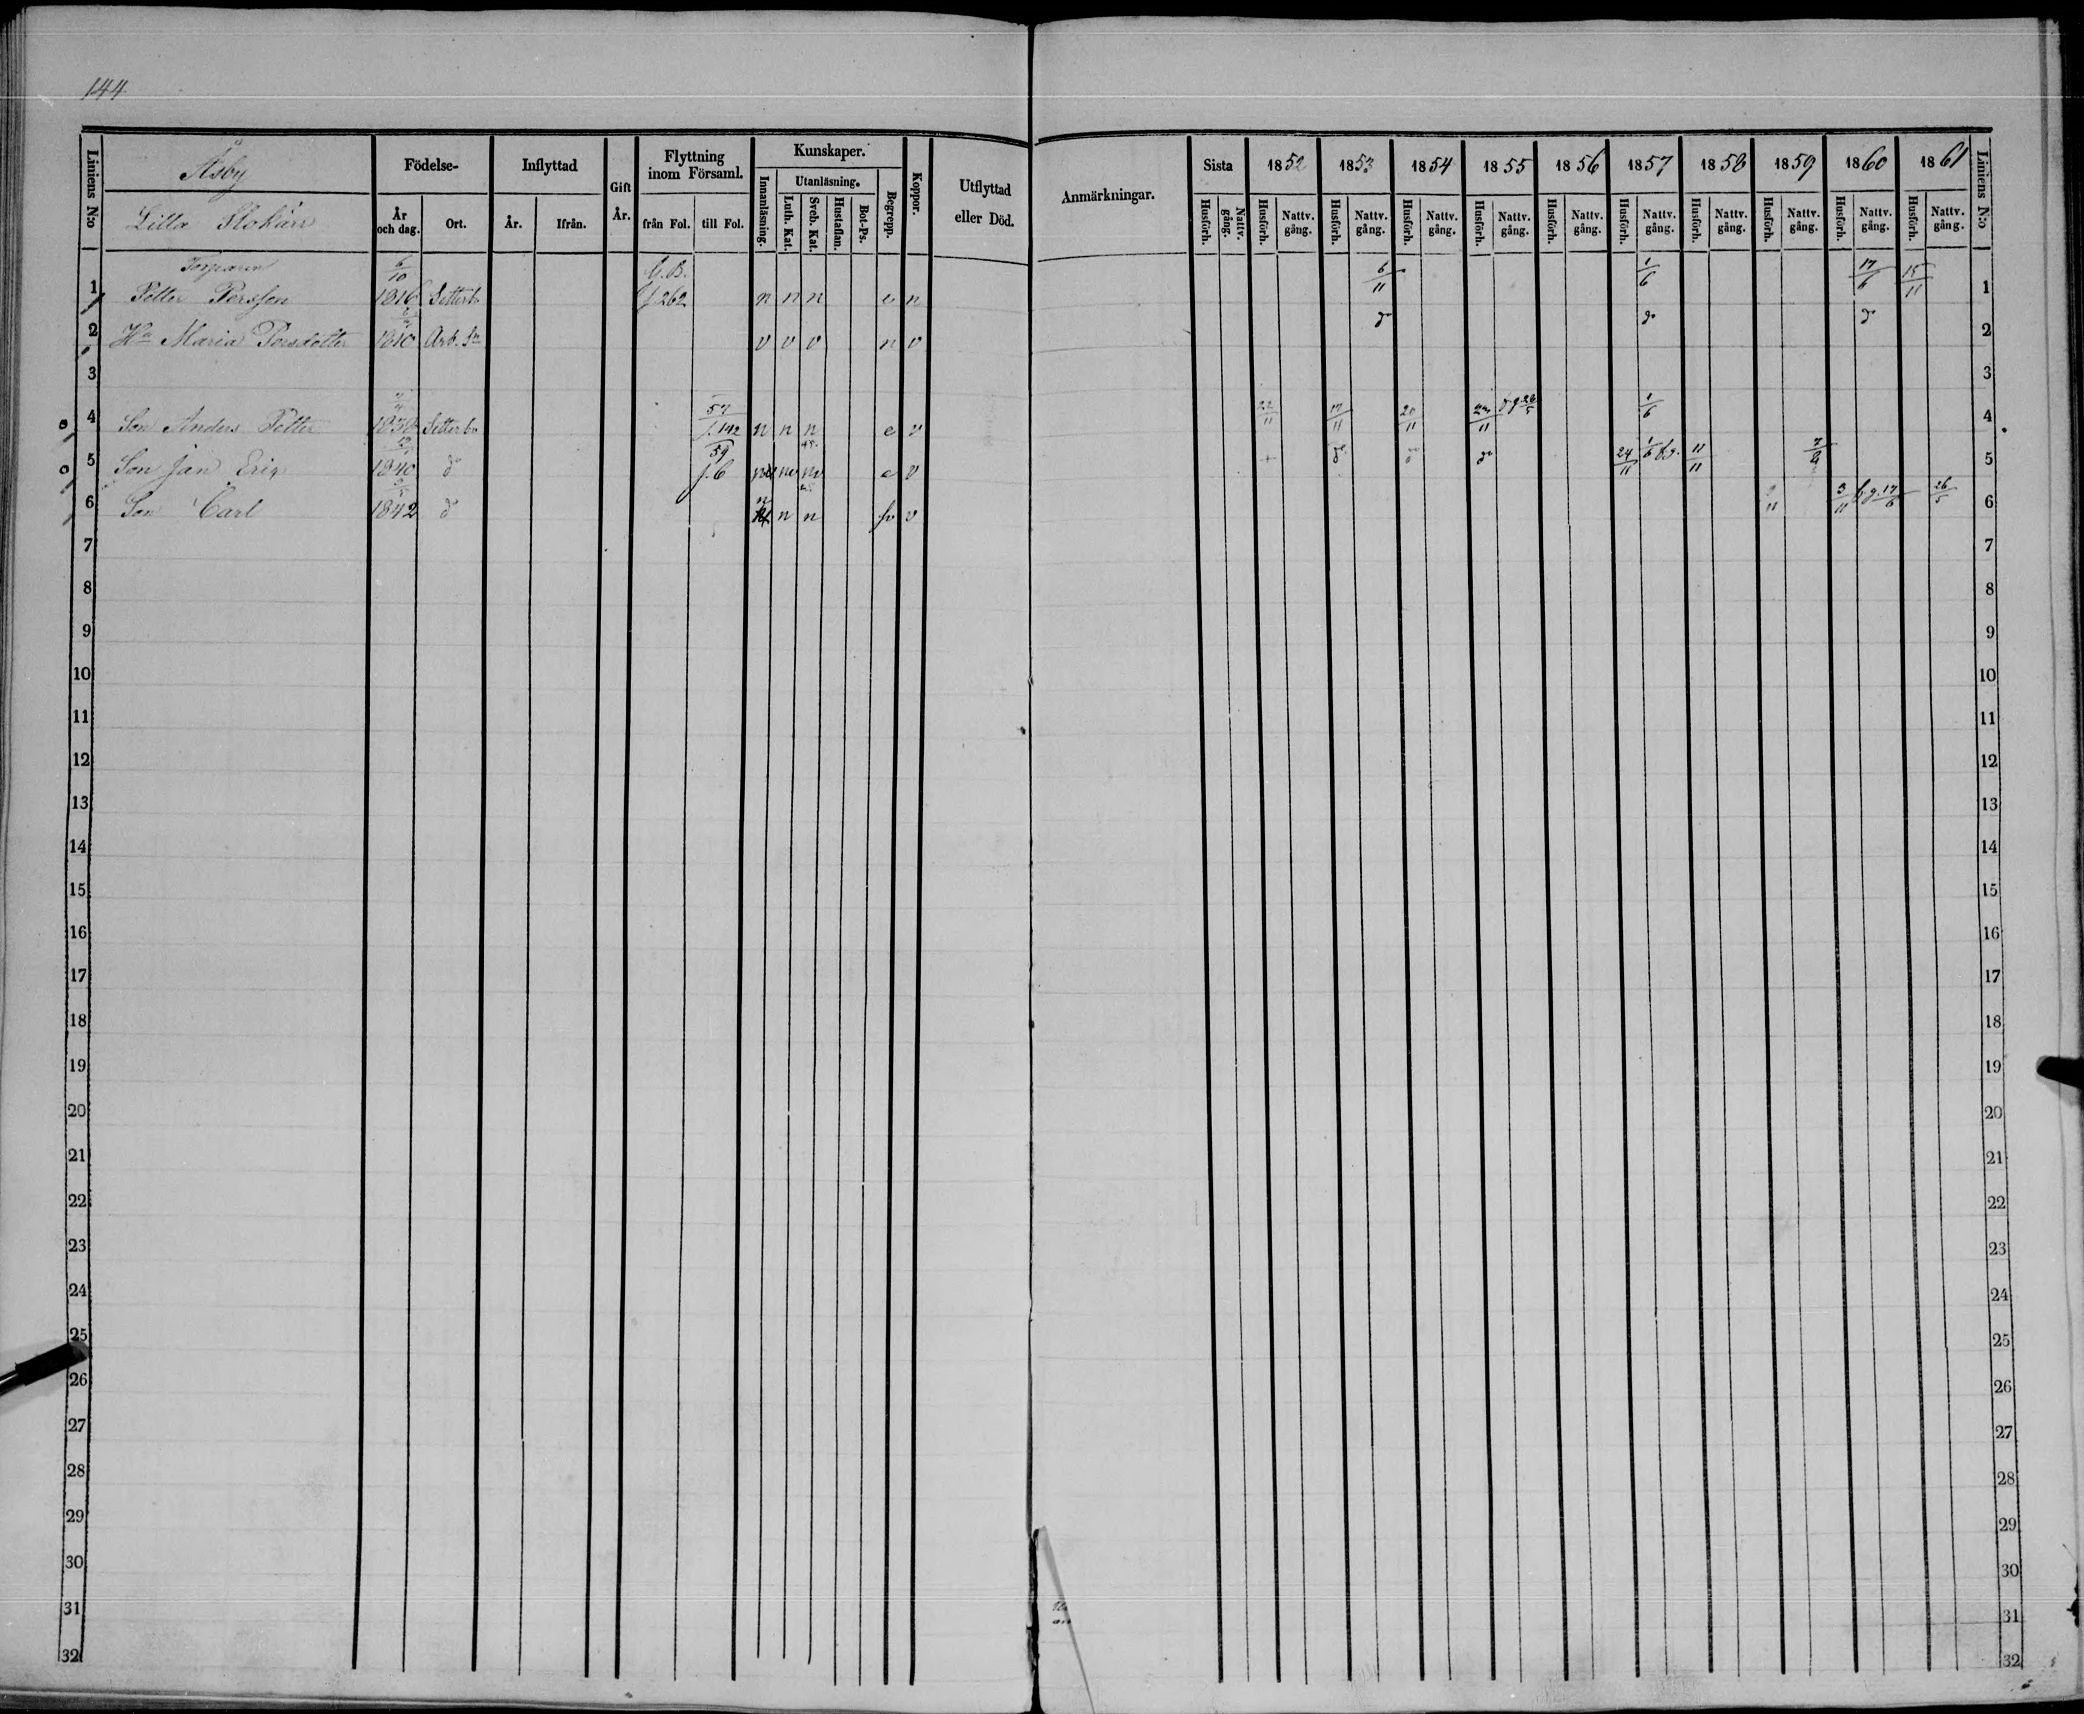 144
Liniens N:o
Åsby
Lilla Slokärr
Födelse-
År och dag.
Ort.
Inflyttad
År.
Ifrån.
Gift År.
Flyttning inom Församl.
från Fol.
till Fol.
Kunskaper.
Innanläsning.
Utanläsning.
Luth. Kat.
Sveb. Kat.
Hustaflan.
Bot-Ps.
Begrepp.
Koppor.
Utflyttad eller Död.
Anmärkningar.
Sista
Husförh.
Nattv. gång.
1852 1853 1854 1855 1856 1857 1858 1859 1860 1861
Husförh. Nattv. gång. Husförh. Nattv. gång. Husförh. Nattv. gång. Husförh. Nattv. gång. Husförh. Nattv. gång. Husförh. Nattv. gång. Husförh. Nattv. gång. Husförh. Nattv. gång. Husförh. Nattv. gång. Husförh. Nattv. gång.
Liniens N:o
Torparen 6/10 G. B. 6/11 1/6 17/6 15/11
1 Petter Persson 1816 Setterbo f 262 n n n n 1
2 Hu Maria Persdotter 1810 Arb. Sn v v v n v 2
3 3
57 22/11 17/11 20/11 1/6
4 Son Anders Petter Setterbo f. 142 n n n e v 4
59 24/11 1/6 11/11
5 Son Jan Eric 1840 d f. 6 e v 5
3/11 17/6 26/5
6 Son Carl 1842 d n n v 6
7 7
8 8
9 9
10 10
11 11
12 12
13 13
14 14
15 15
16 16
17 17
18 18
19 19
20 20
21 21
22 22
23 23
24 24
25 25
26 26
27 27
28 28
29 29
30 30
31 31
32 32